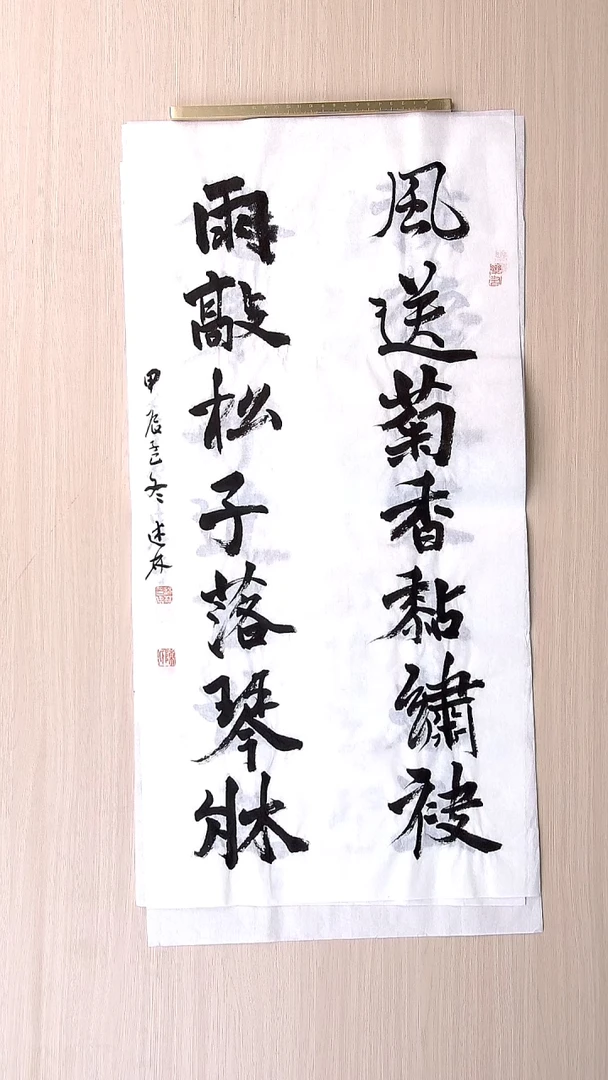 風送菊香黏繡袂
雨敲松子落琴牀
甲辰冬林